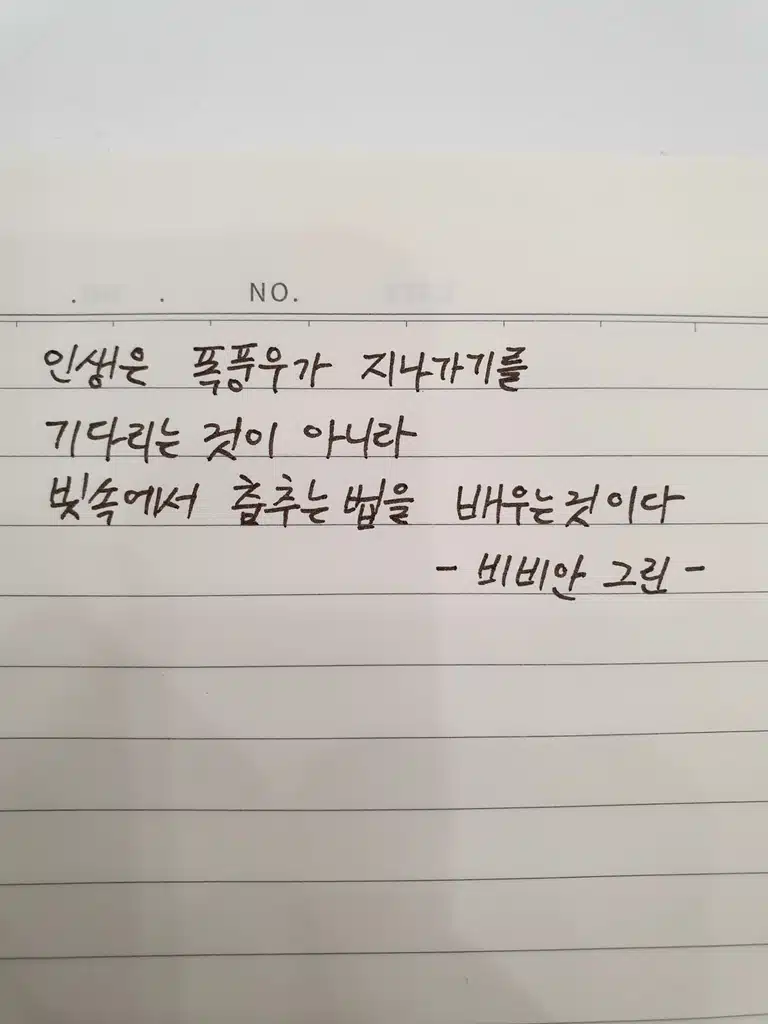 . . NO.
인생은 폭풍우가 지나가기를
기다리는 것이 아니라
빗속에서 춤추는 법을 배우는것이다
- 비비안 그린 -